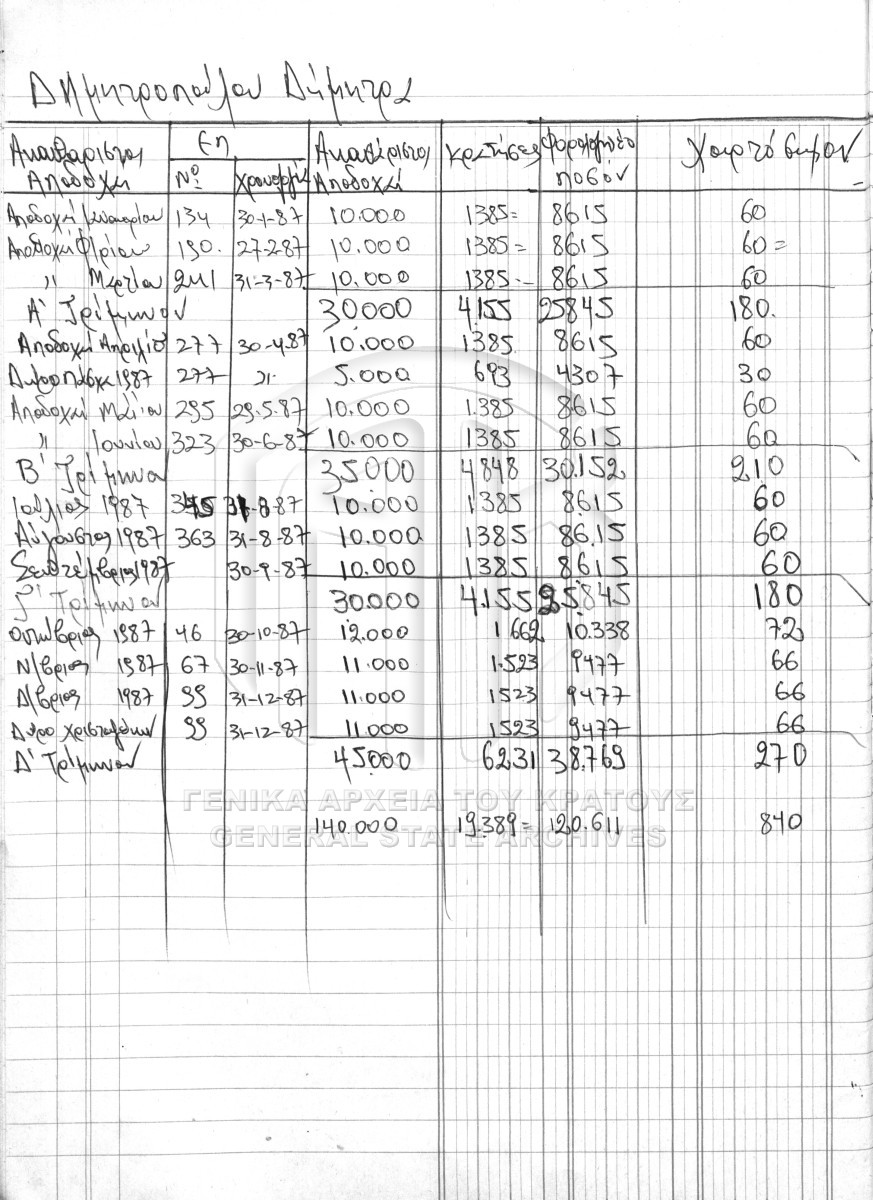 Δημητροπούλου Δήμητρα
Ακαθάριστοι Αποδοχαί | Επ Νο | Χρονολογία | Ακαθάριστοι Αποδοχαί | Κρατήσεις | Φορολογητέο ποσόν | Χαρτόσημον
Αποδοχαί Ιανουαρίου 134 30-1-87 10.000 1385= 8615 60
Αποδοχαι Φ/ρίου 190. 27-2-87 10.000 1385= 8615 60=
〃 Μαρτίου 241 31-3-87 10.000 1385.- 8615 60
Α' Τρίμηνον 30000 4.155 25845 180.
Αποδοχαί Απριλίο 277 30-4-87 10.000 1385. 8615 60
Δωροπάσχα 1987 277 〃 5.000 693 4307 30
Αποδοχαί Μαΐου 295 29.5-87 10.000 1.385 8615 60
〃 Ιουνίου 323 30-6-87 10.000 1385 8615 60
Β' Τρίμηνον 35000 4848 30.152 210
Ιούλιος 1987 345 31-8-87 10.000 1385 8615 60
Αύγουστος 1987 363 31-8-87 10.000 1385 86.15 60
Σεπτέμβριος 1987 30-9-87 10.000 1385 8615 60
Γ' Τρίμηνον 30.000 4.155 25.845 180
Οκτώβριος 1987 46 30-10-87 12.000 1662 10.338 72
Ν/βριος 1987 67 30-11-87 11.000 1.523 9477 66
Δ/βριος 1987 99 31-12-87 11.000 1523 9477 66
Δωρο Χριστουγέννων 99 31-12-87 11.000 1523 9477 66
Δ' Τρίμηνον 45.000 6231 38.769 270
ΓΕΝΙΚΑ ΑΡΧΕΙΑ ΤΟΥ ΚΡΑΤΟΥΣ
140.000 19.389= 120.611 840
GENERAL STATE ARCHIVES